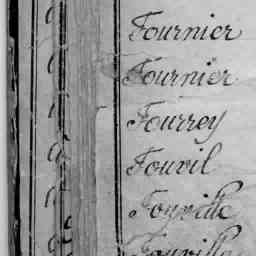 Fournier
Fournier
Fourrey
Fouvil
Fouville